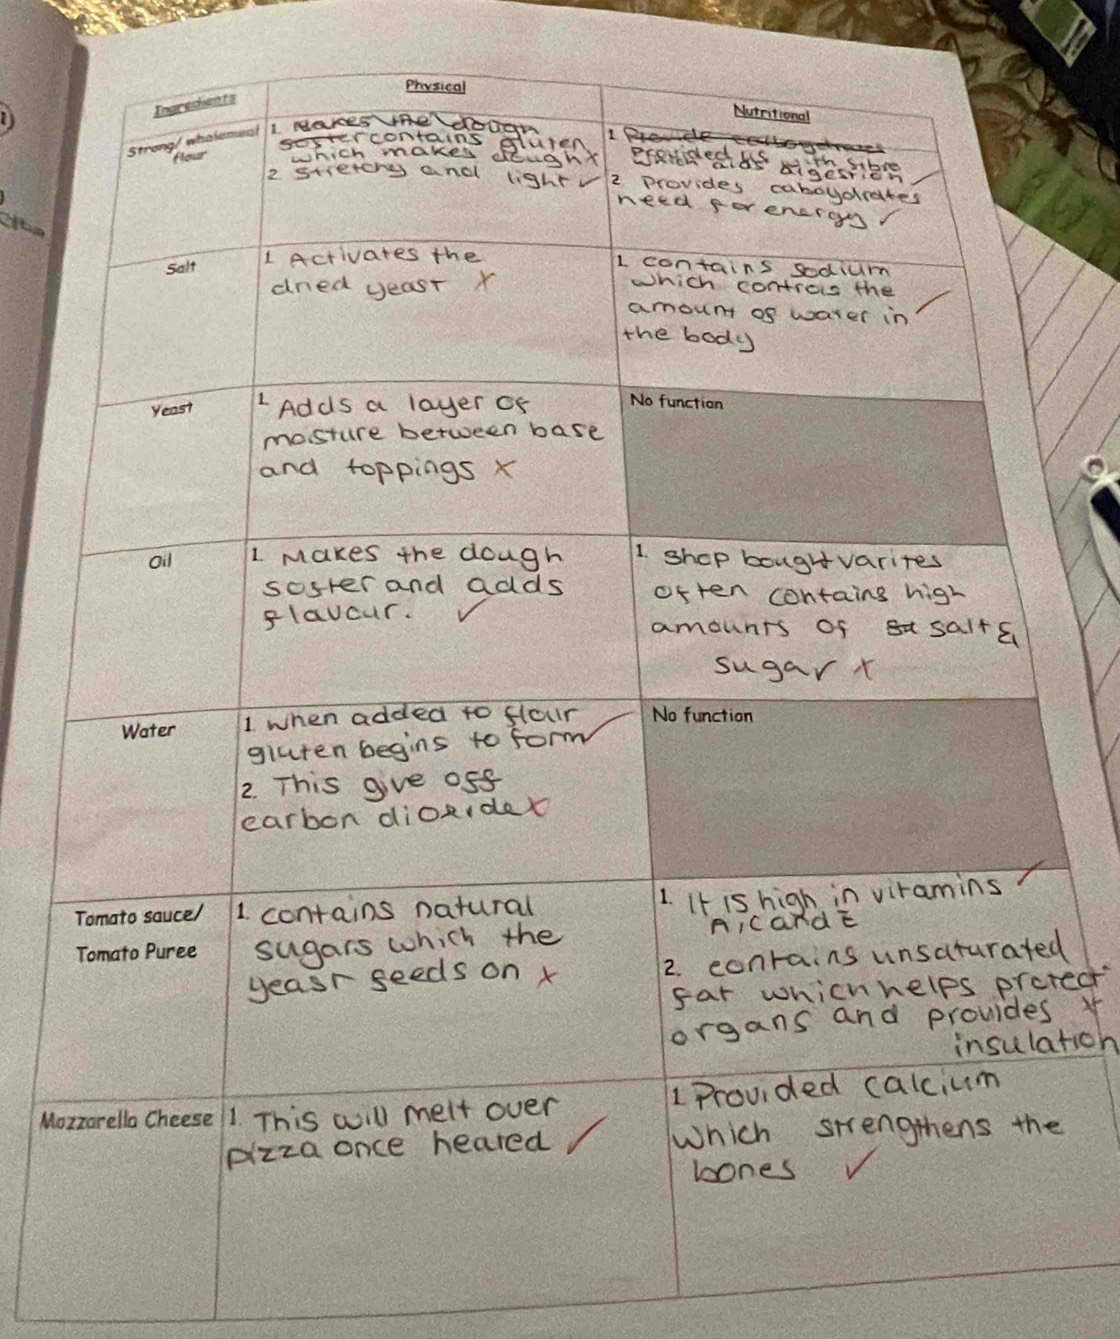 Ingredients Physical Nutritional
Strong/ wholemeal
flour
1. Makes the dough
softer contains gluten
which makes dough x
2 stretchy and light ✓
1 Provide carboydrates
Provided us with fibre
aids digestion
2 Provides caboydrates
need for energy ✓
Salt
1 Activates the
dried yeast x
1 contains sodium
which controls the
amount of water in
the body
Yeast
1 Adds a layer of
moisture between base
and toppings x
No function
Oil
1. Makes the dough
softer and adds
flavour. ✓
1. Shop bought varites
often contains high
amounts of salt &
sugar x
Water
1 when added to flour
gluten begins to form
2. This give off
carbon dioxide x
No function
Tomato sauce/
Tomato Puree
1. contains natural
sugars which the
yeast feeds on x
1. It is high in vitamins
A, C and E
2. contains unsaturated
fat which helps protect
organs and provides x
insulation
Mozzarella Cheese
1. This will melt over
pizza once heated ✓
1 Provided calcium
which strengthens the
bones ✓